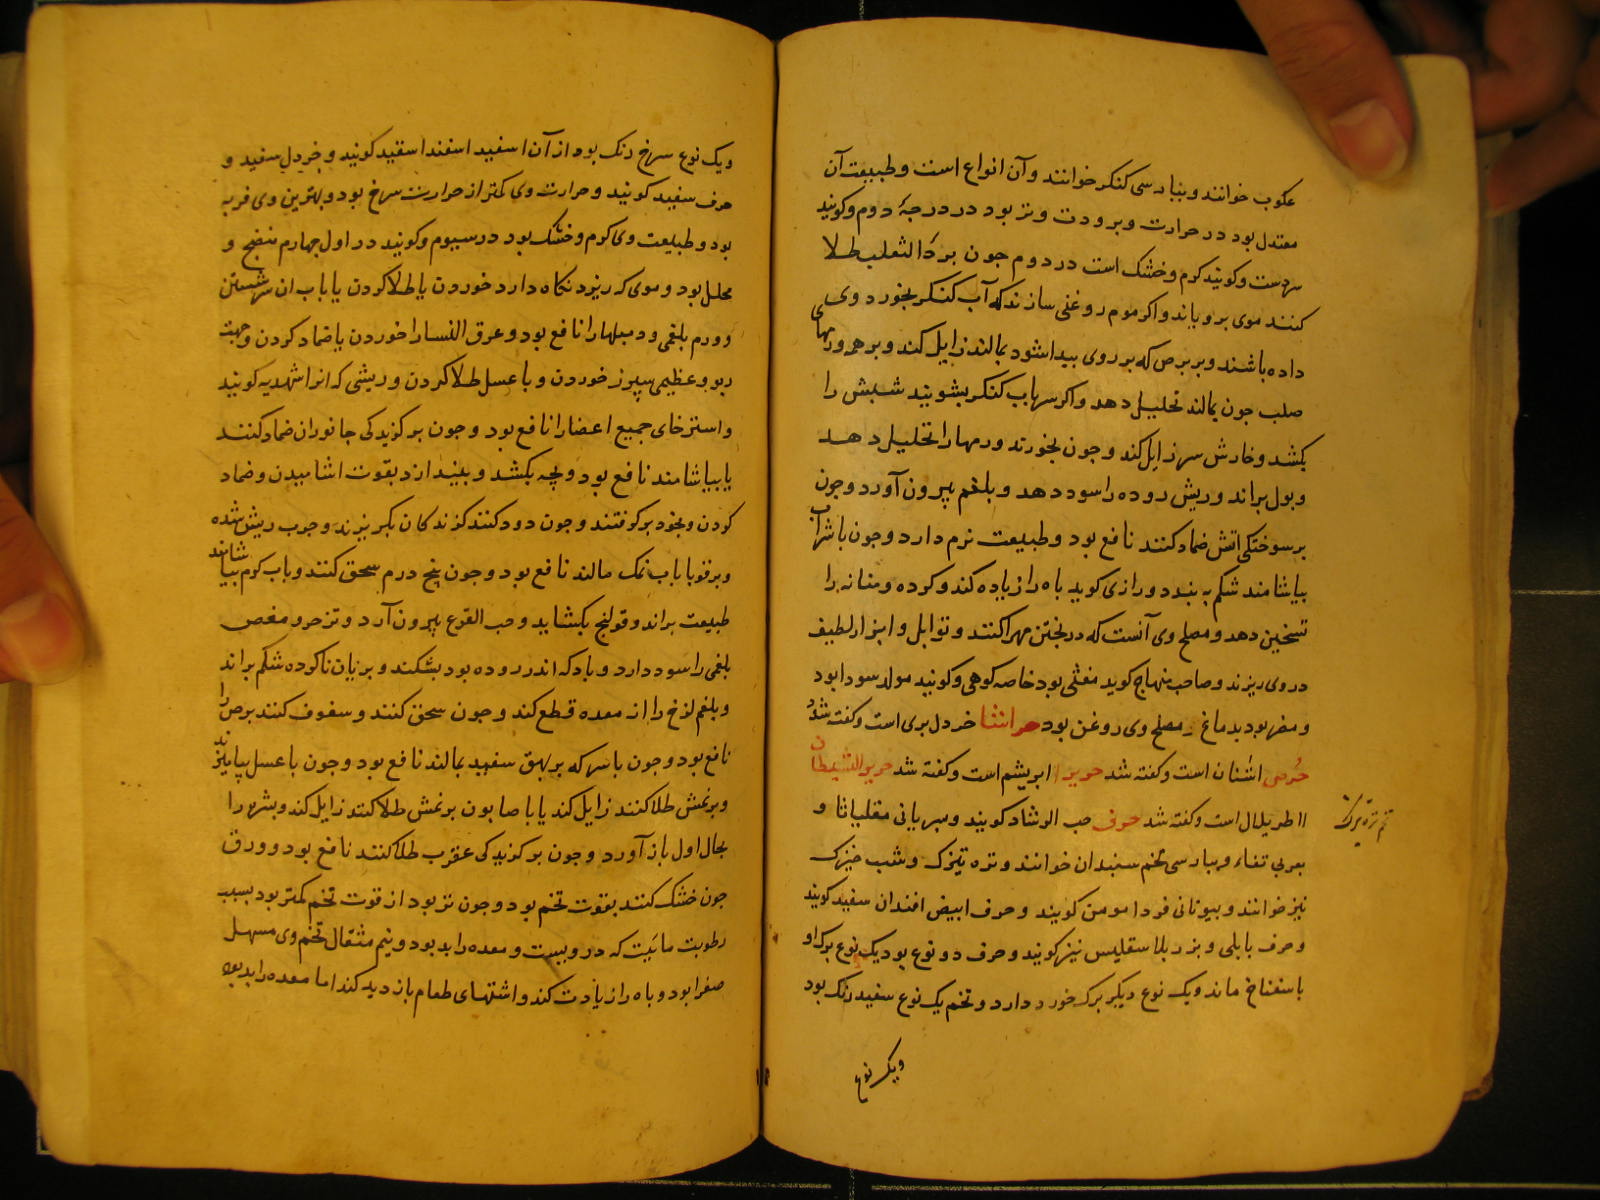 عکوب خوانند و بپارسی کنکر خوانند و آن انواع است و طبیعت آن
معتدل بود در حرارت و برودت و تر بود در درجهٔ دوم و کویند
سردست و کویند کرم و خشک است در دوم جون بر داء الثعلب طلا
کنند موی برویاند و اکر موم روغنی سازند که آب کنکر بخورد وی
داده باشند و بر برص که بر روی پیدا شود بمالند زایل کند و بر همه ورمهای
صلب جون بمالند تحلیل دهد و اکر سر باب کنکر بشویند شپش را
بکشد و خارش سر زایل کند و جون بخورند ورمها را تحلیل دهد
و بول براند و ریش روده را سود دهد و بلغم بیرون آورد و جون
بر سوختکی اتش ضماد کنند نافع بود و طبیعت نرم دارد و جون با شراب
بیاشامند شکم به بندد و رازی کوید باه را زیاده کند و کرده و مثانه را
تسخین دهد و مصلح وی آنست که در پختن مهرا کنند و توابل و ابزار لطیف
در وی ریزند و صاحب منهاج کوید مغثی بود خاصه کوهی و کویند مولد سودا بود
و مضر بود بدماغ و مصلح وی روغن بود حراشا خردل بری است و کفته شد
حرص اشنان است و کفته شد حریر ابریشم است و کفته شد حریر الشیطان
اطریلال است و کفته شد حرف حب الرشاد کویند و سریانی مقلیاثا و
بعربی ثفاء و بپارسی تخم سپندان خوانند و تره تیزک و شب خیزک
نیز خوانند و بیونانی فردامومن کویند و حرف ابیض افندان سفید کویند
و حرف بابلی و بزر بلاسقلیس نیز کویند و حرف دو نوع بود یک نوع برک او
باسفناخ ماند و یک نوع دیکر برک خورد دارد و تخم یک نوع سفید رنک بود
تخم تره تیزک
ویک نوع
ویک نوع سرخ رنک بود از آن اسفید اسفند اسقید کویند و خردل سفید و
حرف سفید کویند و حرارت وی کمتر از حرارت سرخ بود و بهترین وی فربه
بود و طبیعت وی کرم و خشک بود در سیوم و کویند در اول چهارم منضج و
محلل بود و موی که ریزد نکاه دارد خوردن یا طلا کردن یا باب ان سر شستن
و ورم بلغمی و دمبلها را نافع بود و عرق النسا را خوردن یا ضماد کردن و جهت
ربو و عظیمی سپرز خوردن و با عسل طلا کردن و ریشی که انرا شهدیه کویند
و استرخای جمیع اعضا را نافع بود و جون بر کزیدکی جانوران ضماد کنند
یا بیاشامند نافع بود و بچه بکشد و بیندازد بقوت اشامیدن و ضماد
کردن و بخود برکرفتند و جون دود کنند کزندکان بکریزند و جرب ریش شده
و بر قوبا باب نمک مالند نافع بود و جون پنج درم سحق کنند و باب کرم بیاشامند
طبیعت براند و قولنج بکشاید و حب القرع بیرون آرد و تزحر و مغص
بلغمی را سود دارد و باد که اندر روده بود بشکند و بریان ناکرده شکم براند
و بلغم لزج را از معده قطع کند و جون سحق کنند و سفوف کنند برص را
نافع بود و جون با سرکه بر بهق سفید بمالند نافع بود و جون با عسل بیامیزند
و بر نمش طلا کنند زایل کند یا با صابون بر نمش طلا کنند زایل کند و بشره را
بحال اول باز آورد و جون بر کزیدکی عقرب طلا کنند نافع بود و ورق
جون خشک کنند بقوت تخم بود و جون تر بود از قوت تخم کمتر بود بسبب
رطوبت مائیت که در ویست و معده را بد بود و نیم مثقال تخم وی مسهل
صفرا بود و باه را زیادت کند و اشتهای طعام بازدید کند اما معده را بد بود